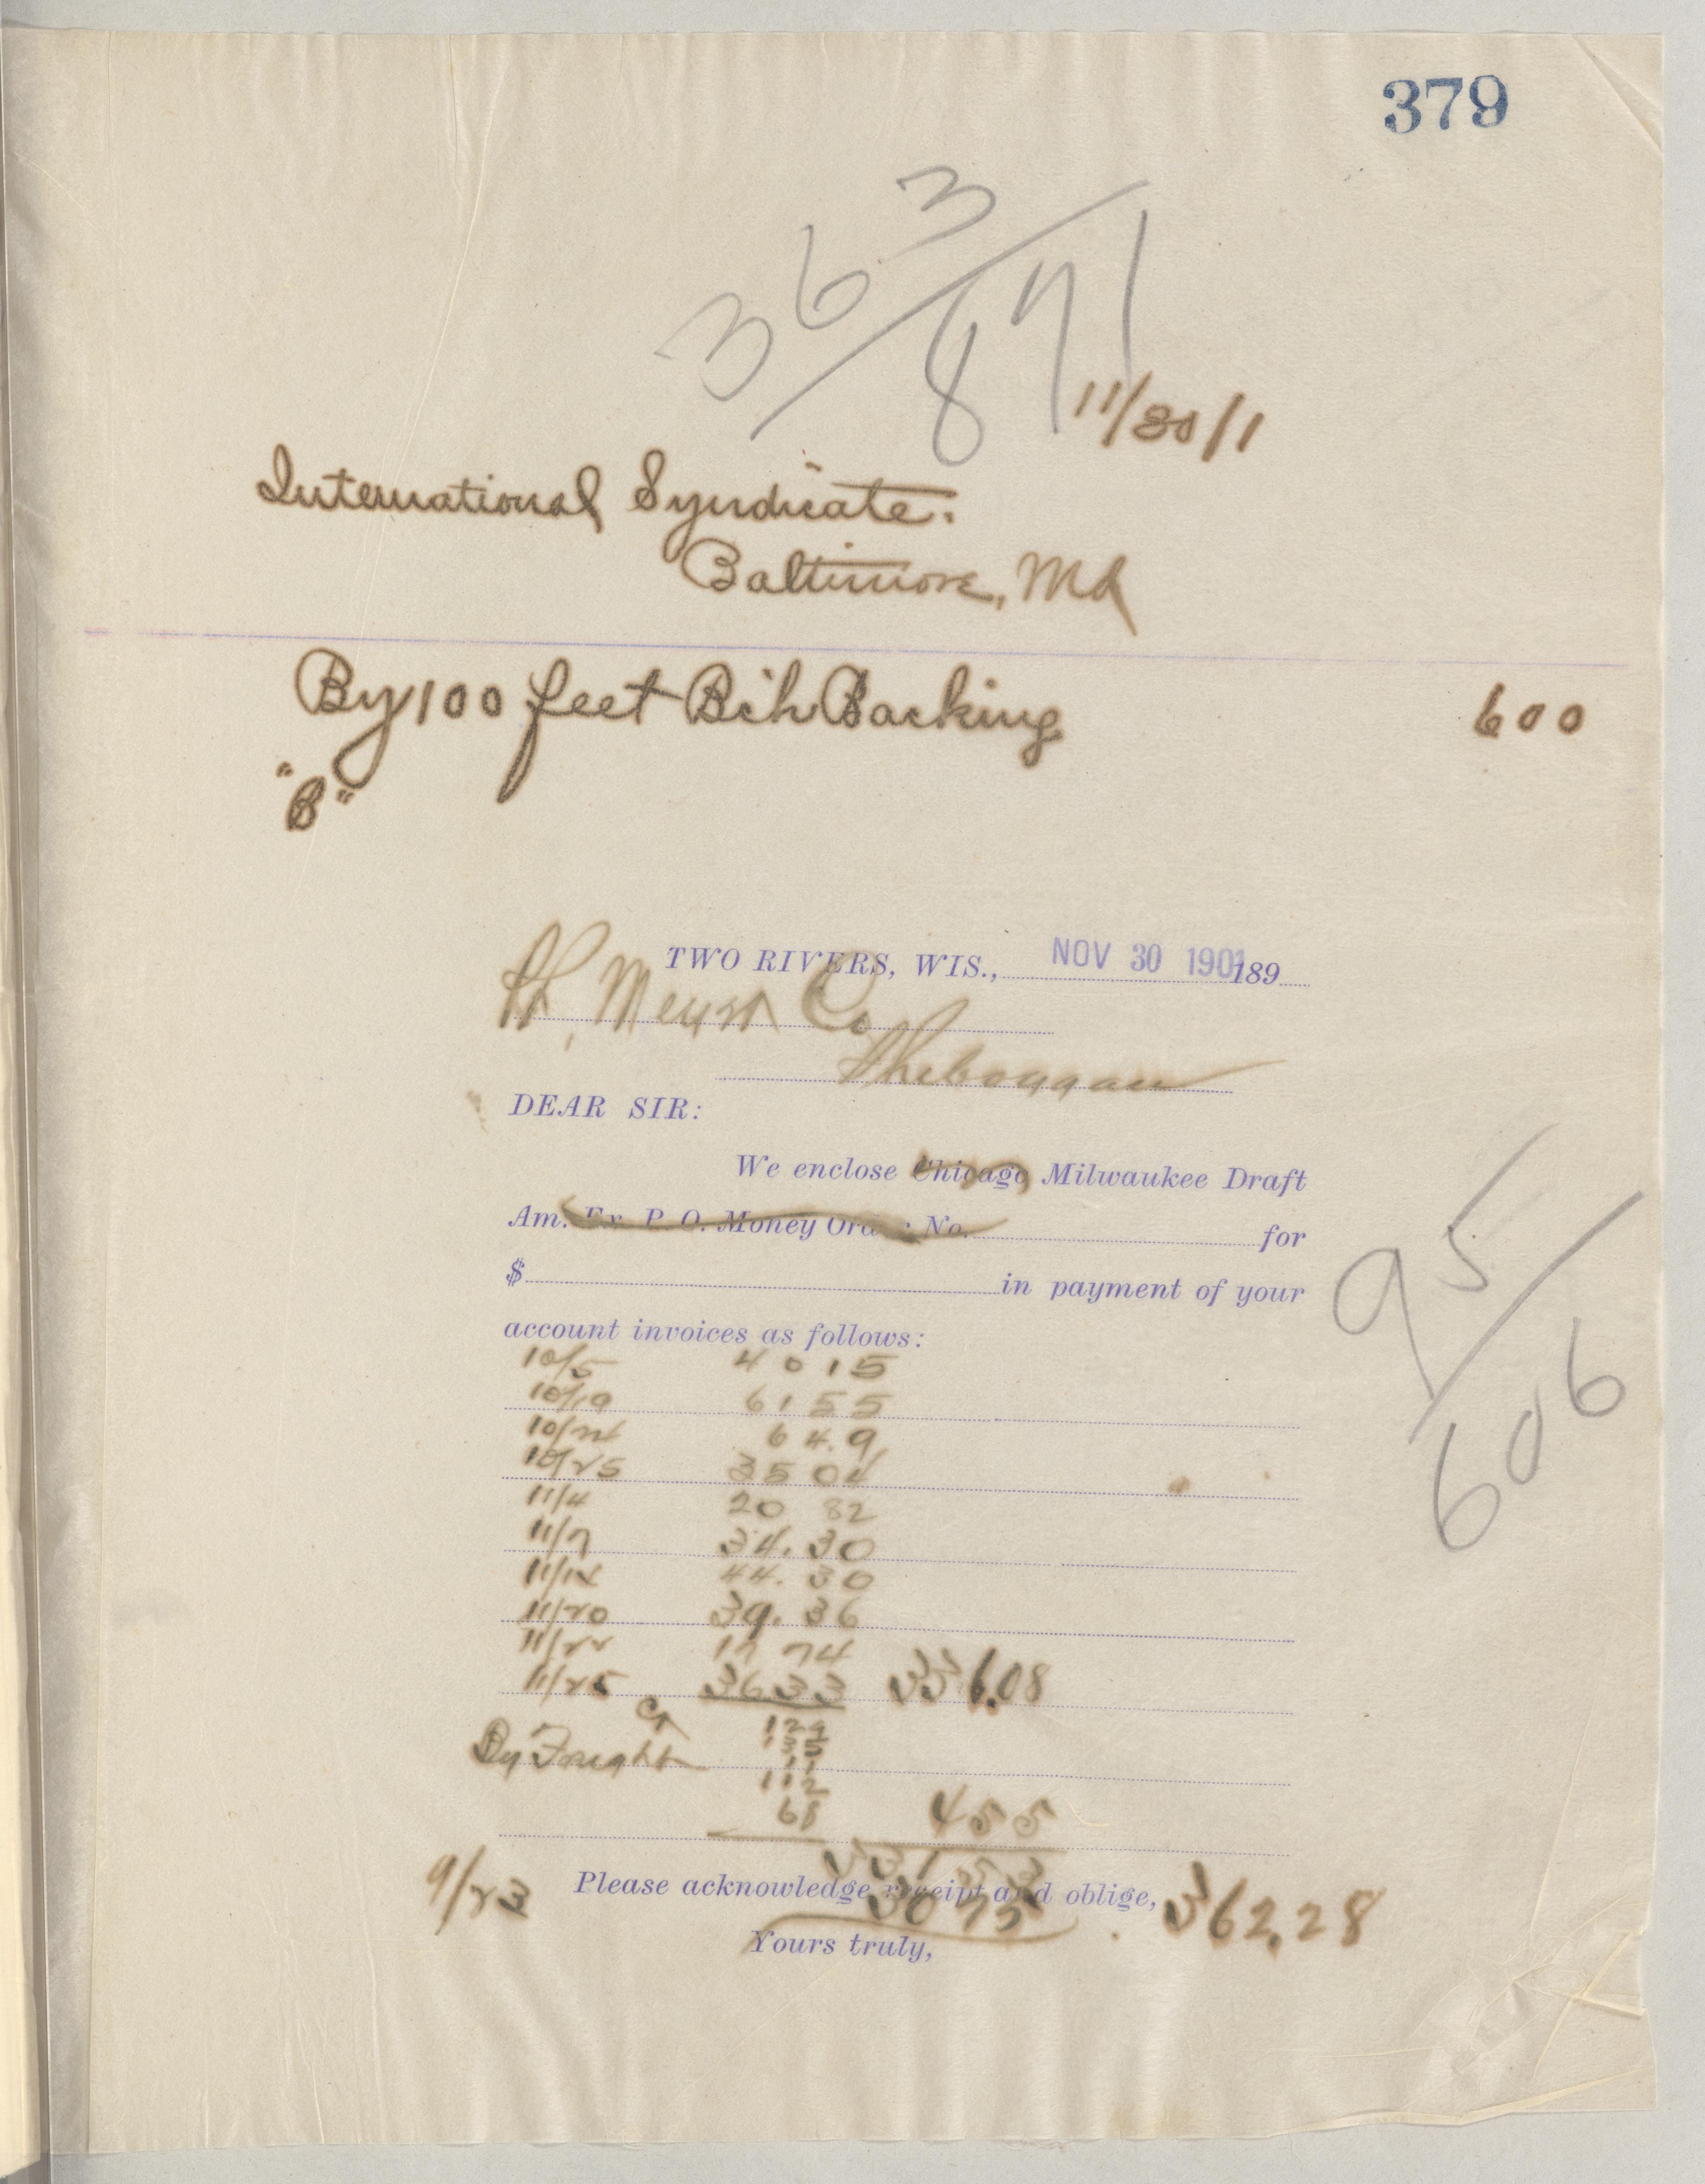 379
363/871
11/30/1
International Syndicate.
Baltimore, Md
By 100 feet Bch Backing 600
"B"
TWO RIVERS, WIS., NOV 30 1901 189
H, Meyer Co
Sheboygan
DEAR SIR:
We enclose Chicago Milwaukee Draft
Am. Ex. P. O. Money Order No. for
$ in payment of your
account invoices as follows:
10/5 40 15
10/19 61 55
10/24 6 4.9
10/25 35 04
11/4 20 82
11/7 34.30
11/14 44.30
11/20 39.36
11/22 17 74
11/25 36 33 336.08
Cr
By Freight 129
135
11
112
68 455
331 53
9/23 30 75 362.28
Please acknowledge receipt and oblige,
Yours truly,
95/606